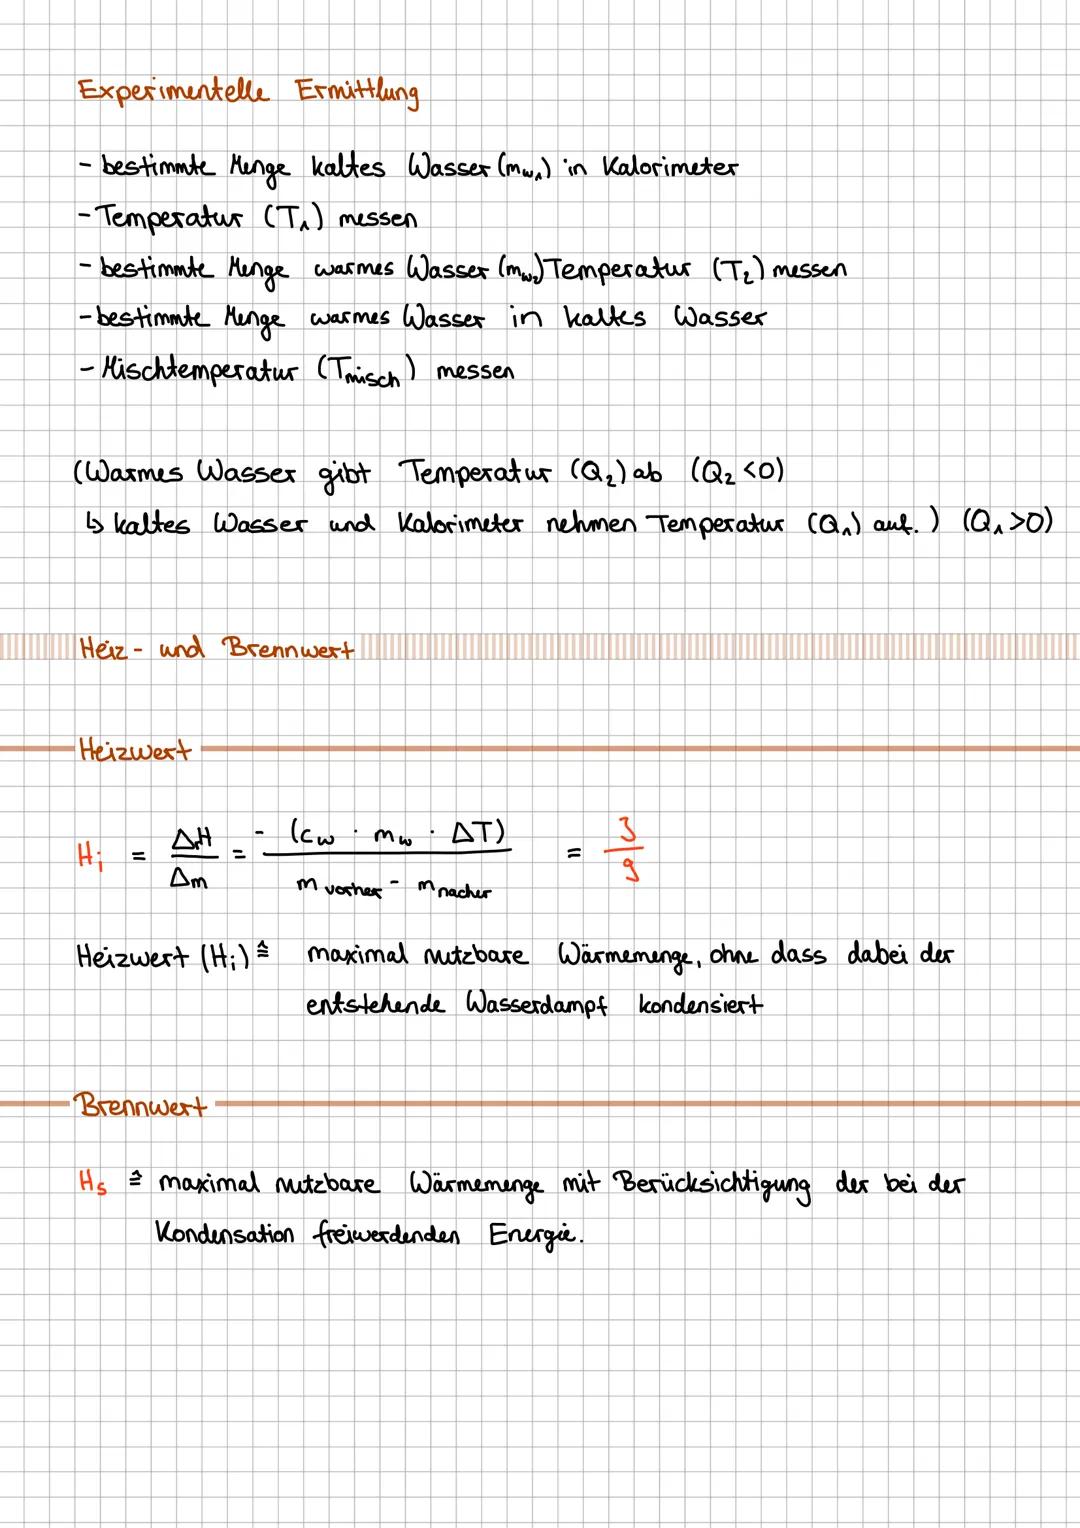 Experimentelle Ermittlung
- bestimmte Menge kaltes Wasser (m_W₁) in Kalorimeter
- Temperatur (T₁) messen
- bestimmte Menge warmes Wasser (m_W₂) Temperatur (T₂) messen
- bestimmte Menge warmes Wasser in kaltes Wasser
- Mischtemperatur (T_misch) messen
(Warmes Wasser gibt Temperatur (Q₂) ab (Q₂ <0)
↳ kaltes Wasser und Kalorimeter nehmen Temperatur (Q₁) auf.) (Q₁ >0)
Heiz- und Brennwert
Heizwert
H_i = ΔᵣH / Δm = - (c_W · m_W · ΔT) / (m_vorher - m_nacher) = J/g
Heizwert (H_i) ≙ maximal nutzbare Wärmemenge, ohne dass dabei der
entstehende Wasserdampf kondensiert
Brennwert
H_s ≙ maximal nutzbare Wärmemenge mit Berücksichtigung der bei der
Kondensation freiwerdenden Energie.